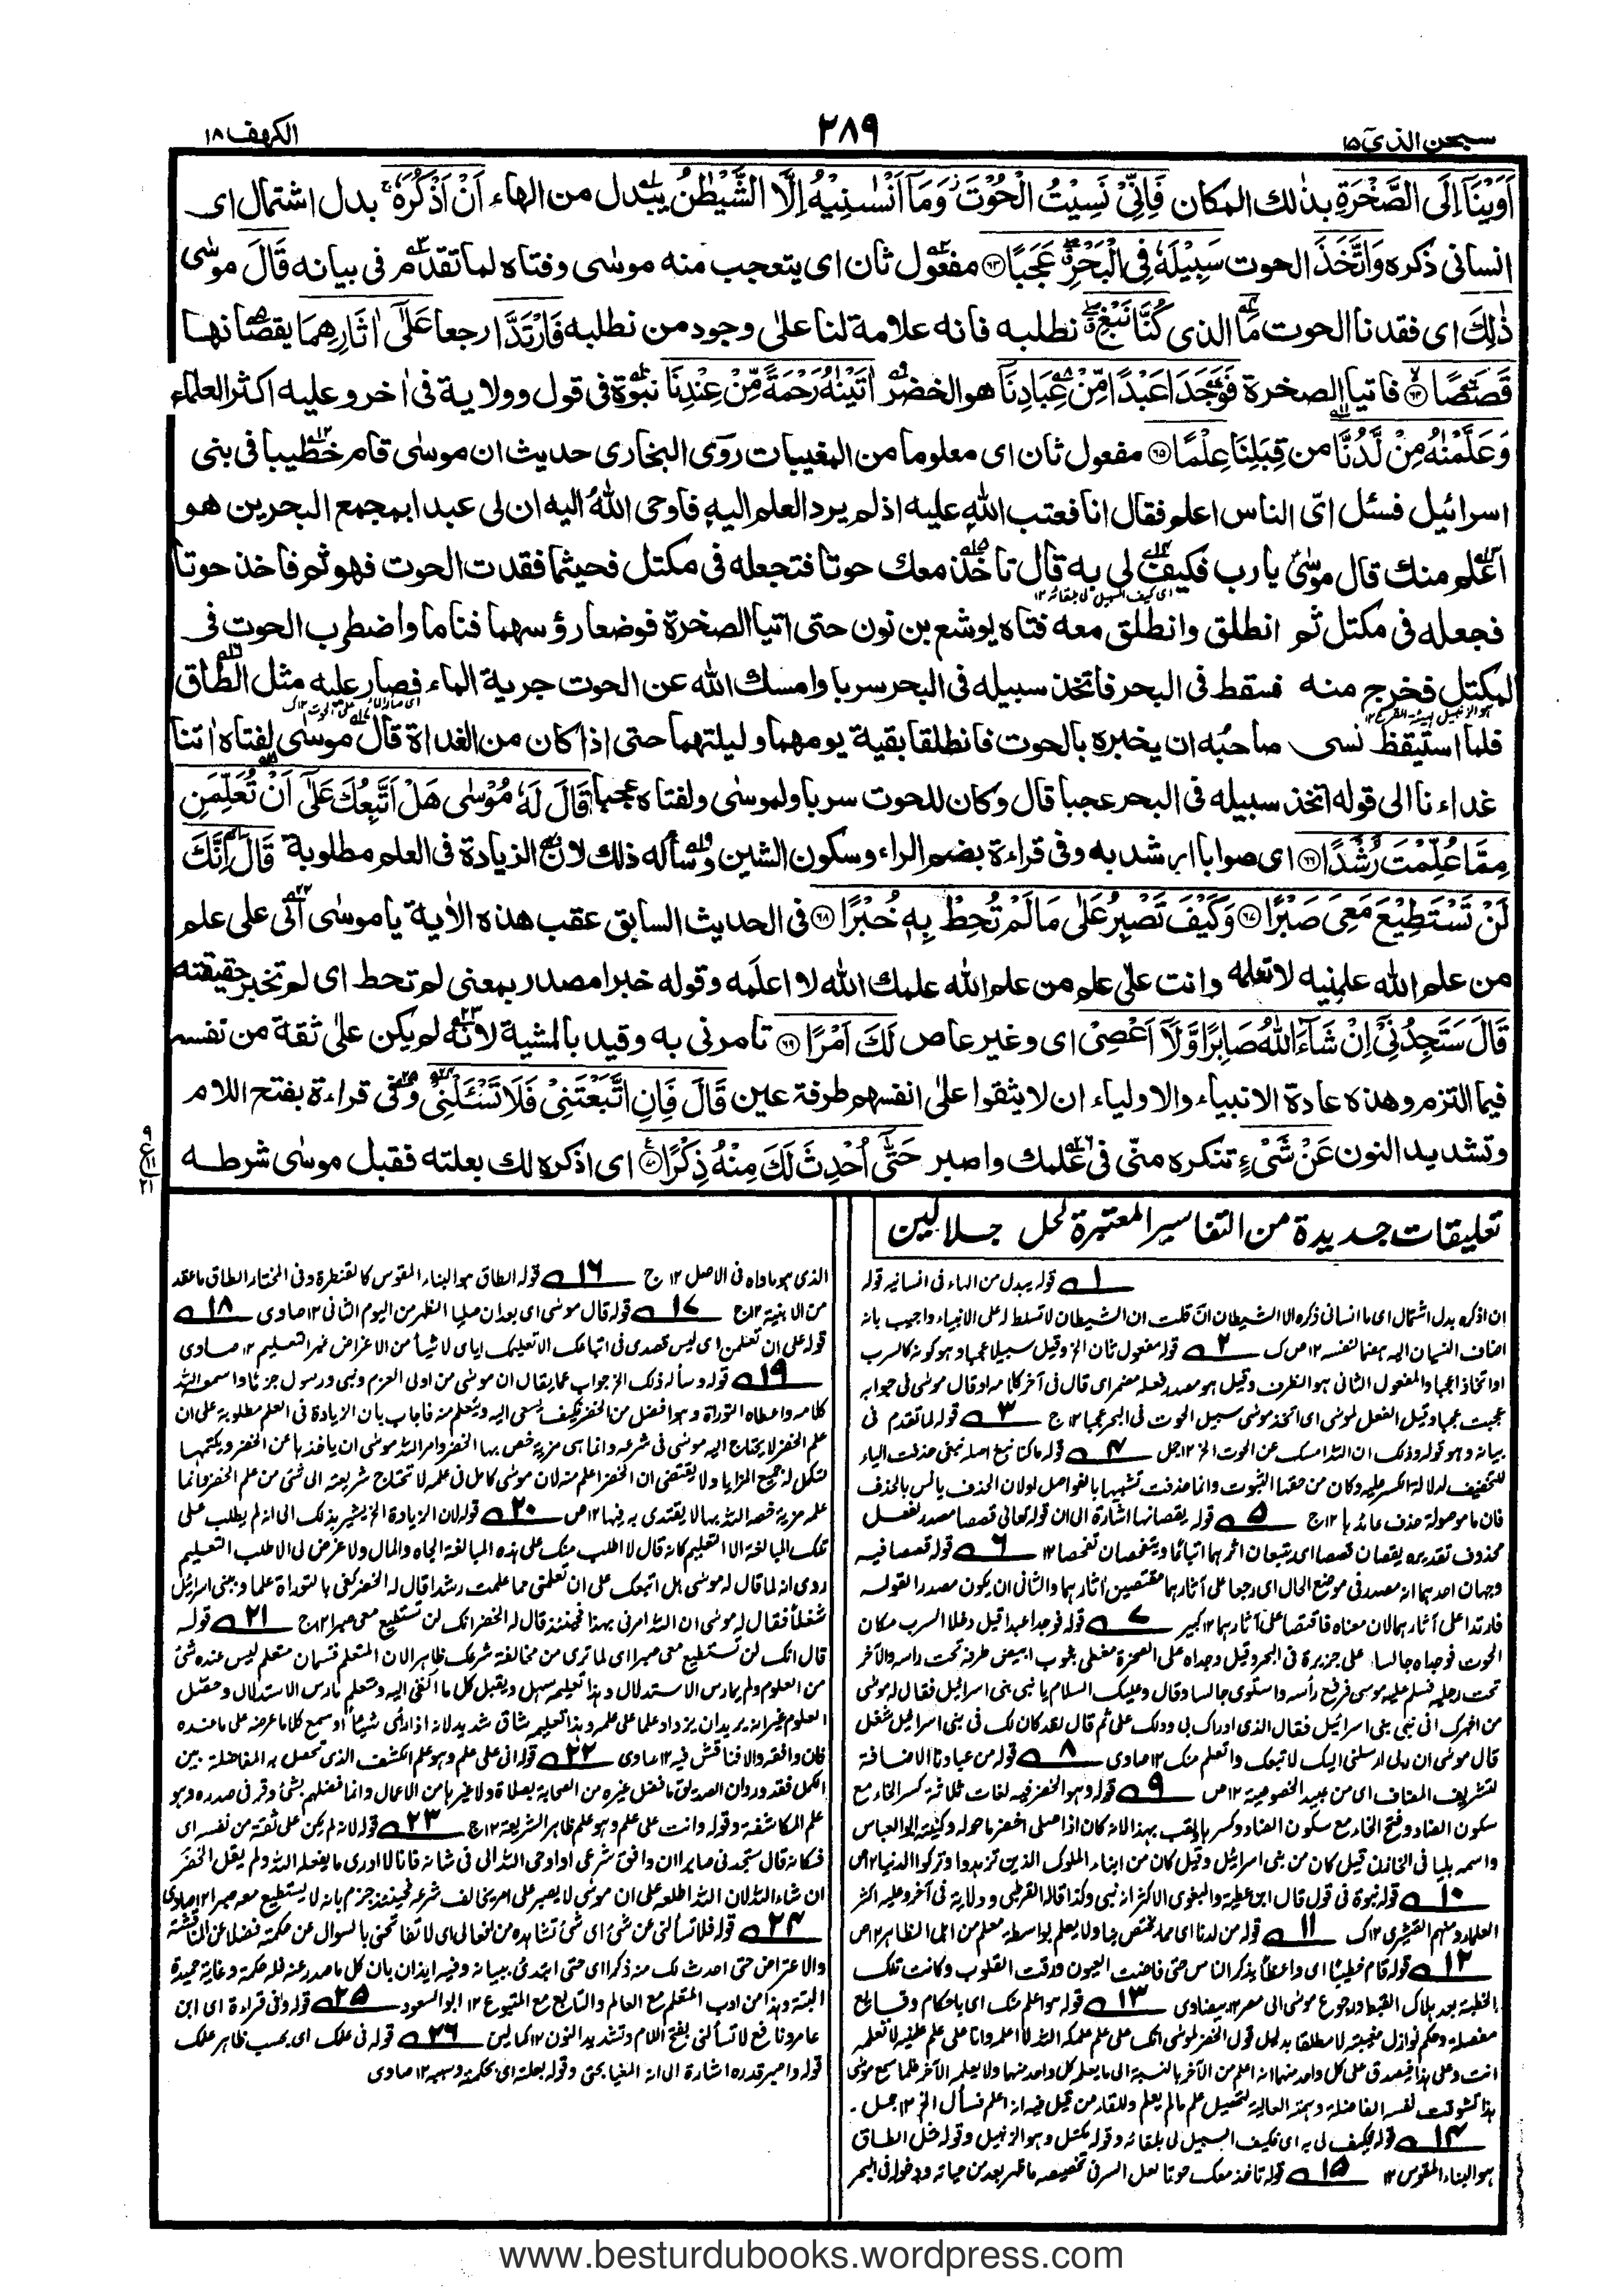 سبحن الذی ١٥
٢٨٩
الكهف ١٨
اَوَيْنَآ اِلَى الصَّخْرَةِ بذلك المكان فَاِنِّيْ نَسِيْتُ الْحُوْتَ وَمَآ اَنْسٰنِيْهُ اِلَّا الشَّيْطٰنُ يبدل من الهاء اَنْ اَذْكُرَهٗ بدل اشتمال اى
انسانى ذكره وَاتَّخَذَ الحوت سَبِيْلَهٗ فِي الْبَحْرِ عَجَبًا ﴿٦٣﴾ مفعول ثان اى يتعجب منه موسٰى وفتاه لما تقدم فى بيانه قَالَ موسٰى
ذٰلِكَ اى فقدنا الحوت مَا الذى كُنَّا نَبْغِ نطلبه فانه علامة لنا علٰى وجود من نطلبه فَارْتَدَّا رجعا عَلٰٓى اٰثَارِهِمَا يقصّانها
قَصَصًا ﴿٦٤﴾ فاتيا الصخرة فَوَجَدَا عَبْدًا مِّنْ عِبَادِنَآ هو الخضر اٰتَيْنٰهُ رَحْمَةً مِّنْ عِنْدِنَا نبوة فى قول وولاية فى اٰخر وعليه اكثر العلماء
وَعَلَّمْنٰهُ مِنْ لَّدُنَّا من قِبَلِنَا عِلْمًا ﴿٦٥﴾ مفعول ثان اى معلوما من المغيبات روى البخارى حديث ان موسٰى قام خطيبا فى بنى
اسرائيل فسئل اىّ الناس اعلم فقال انا فعتب الله عليه اذ لم يرد العلم اليه فاوحى اللهُ اليه ان لى عبدا بمجمع البحرين هو
اعلم منك قال موسٰى يا رب فكيف لى به قال تاخذ معك حوتا فتجعله فى مكتل فحيثما فقدت الحوت فهو ثم فاخذ حوتا
اى كيف السبيل لى بلقائه ١٢
فجعله فى مكتل ثم انطلق وانطلق معه فتاه يوشع بن نون حتى اتيا الصخرة فوضعا رؤسهما فناما واضطرب الحوت فى
المكتل فخرج منه فسقط فى البحر فاتخذ سبيله فى البحر سربا وامسك الله عن الحوت جرية الماء فصار عليه مثل الطاق
فلما استيقظ نسى صاحبُه ان يخبره بالحوت فانطلقا بقية يومهما وليلتهما حتى اذا كان من الغداة قال موسٰى لفتاه اٰتنا
غداءنا الى قوله اتخذ سبيله فى البحر عجبا قال وكان للحوت سربا ولموسٰى ولفتاه عجبا قَالَ لَهٗ مُوْسٰى هَلْ اَتَّبِعُكَ عَلٰٓى اَنْ تُعَلِّمَنِ
مِمَّا عُلِّمْتَ رُشْدًا ﴿٦٦﴾ اى صوابا ارشد به وفى قراءة بضم الراء وسكون الشين وسأله ذلك لان الزيادة فى العلم مطلوبة قَالَ اِنَّكَ
لَنْ تَسْتَطِيْعَ مَعِيَ صَبْرًا ﴿٦٧﴾ وَكَيْفَ تَصْبِرُ عَلٰى مَا لَمْ تُحِطْ بِهٖ خُبْرًا ﴿٦٨﴾ فى الحديث السابق عقب هذه الاٰية يا موسٰى انى على علم
من علم الله علمنيه لا تعلمه وانت على علم من علم الله علمك الله لا اعلمه وقوله خبرا مصدر بمعنى لم تحط اى لم تخبر حقيقته
قَالَ سَتَجِدُنِيْٓ اِنْ شَآءَ اللّٰهُ صَابِرًا وَّلَآ اَعْصِيْ اى وغير عاص لَكَ اَمْرًا ﴿٦٩﴾ تامرنى به وقيد بالمشية لانه لم يكن علٰى ثقة من نفسه
فيما التزم وهذه عادة الانبياء والاولياء ان لا يثقوا علٰى انفسهم طرفة عين قَالَ فَاِنِ اتَّبَعْتَنِيْ فَلَا تَسْـَٔلْنِيْ وفى قراءة بفتح اللام
وتشديد النون عَنْ شَيْءٍ تنكره منّى فى علمك واصبر حَتّٰٓى اُحْدِثَ لَكَ مِنْهُ ذِكْرًا ﴿٧٠﴾ اى اذكره لك بعلته فقبل موسٰى شرطه
تعليقات جديدة من التفاسير المعتبرة لحل جلالين
١ قوله يبدل من الهاء فى انسانيه قوله
ان اذكره بدل اشتمال اى ما انسانى ذكره الا الشيطان ان قلت ان الشيطان لا تسلط له على الانبياء واجيب بانه
اضاف النسيان اليه هضما لنفسه ١٢ ص ك ٢ قوله مفعول ثان الخ وقيل سبيلا عجبا وهو كونه كالسرب
او اتخاذا عجبا والمفعول الثانى هو الظرف وقيل هو مصدر فعله مضمر اى قال فى آخر كلامه او قال موسٰى فى جوابه
عجبت عجبا وقيل الفعل لموسٰى اى اتخذ موسٰى سبيل الحوت فى البحر عجبا ١٢ ج ٣ قوله لما تقدم فى
بيانه وهو قوله وذلك ان الله امسك عن الحوت الخ ١٢ جمل ٤ قوله ما كنا نبغ اصله نبغى حذفت الياء
للتخفيف لدلالة الكسر عليه وكان من حقها الثبوت وانما حذفت تشبيها بالفواصل او لان الحذف يأنس بالحذف
فان ما موصولة حذف عائدها ١٢ ج ٥ قوله يقصانها اشارة الى ان قوله تعالى قصصا مصدر لفعل
محذوف تقديره يقصان قصصا اى يتبعان اثرهما اتباعا ويتفحصان تفحصا ١٢ ٦ قوله قصصا فيه
وجهان احدهما انه مصدر فى موضع الحال اى رجعا على آثارهما مقتصين آثارهما والثانى ان يكون مصدرا لقوله
فارتدا على آثارهما لان معناه فاقتصا على آثارهما ١٢ كبير ٧ قوله فوجدا عبدا قيل دخلا السرب مكان
الحوت فوجداه جالسا على جزيرة فى البحر وقيل وجداه على الصخرة مغطى بثوب ابيض طرفه تحت راسه والآخر
تحت رجليه فسلم عليه موسى فرفع رأسه واستوى جالسا وقال وعليك السلام يا نبى بنى اسرائيل فقال له موسٰى
من اخبرك انى نبى بنى اسرائيل فقال الذى ادراك بى ودلك علىّ ثم قال لقد كان لك فى بنى اسرائيل شغل
قال موسٰى ان ربى ارسلنى اليك لاتبعك واتعلم منك ١٢ صاوى ٨ قوله من عبادنا الاضافة
لتشريف المضاف اى من عبيد الخصوصية ١٢ ص ٩ قوله وهو الخضر فيه لغات ثلاثة كسر الخاء مع
سكون الضاد وفتح الخاء مع سكون الضاد وكسرها لقب بهذا لانه كان اذا صلى اخضر ما حوله وكنيته ابو العباس
واسمه بليا فى الخازن قيل كان من بنى اسرائيل وقيل كان من ابناء الملوك الذين تزهدوا وتركوا الدنيا ١٢ ص
١٠ قوله نبوة فى قول قال ابن عطية والبغوى الاكثر انه نبى وكذا قاله القرطبى وولاية فى آخر وعليه اكثر
العلماء ومنهم القشيرى ١٢ ك ١١ قوله من لدنا اى مما يختص بنا ولا يعلم بواسطة معلم من اهل الظاهر ١٢ ص
١٢ قوله قام خطيبا اى واعظا يذكر الناس حتى فاضت العيون ورقت القلوب وكانت تلك
الخطبة بعد هلاك القبط ورجوع موسٰى الى مصر ١٢ بيضاوى ١٣ قوله هو اعلم منك اى باحكام وقائع
مفصلة وحكم نوازل معينة لا مطلقا بدليل قول الخضر لموسٰى انك على علم علمكه الله لا اعلمه وانا على علم علمنيه لا تعلمه
انت وعلى هذا فيصدق على كل واحد منهما انه اعلم من الآخر بالنسبة الى ما يعلم كل واحد منهما ولا يعلمه الآخر فلما سمع موسٰى
هذا تشوقت نفسه الفاضلة وهمته العالية لتحصيل علم ما لم يعلم وللقاء من قيل فيه انه اعلم فسأل الخ ١٢ جمل
١٤ قوله فكيف لى به اى فكيف السبيل لى بلقائه وقوله مكتل وهو الزنبيل وقوله مثل الطاق
هو البناء المقوس ١٢ ١٥ قوله تاخذ معك حوتا لعل السر فى تخصيصه ما ظهر بعد من حياته ودخوله فى البحر
الذى هو ماواه فى الاصل ١٢ ج ١٦ قوله الطاق هو البناء المقوس كالقنطرة وفى المختار الطاق ما عقد
من الابنية ١٢ ج ١٧ قوله قال موسٰى اى بعد ان صليا الظهر من اليوم الثانى ١٢ صاوى ١٨
قوله على ان تعلمن اى ليس قصدى فى اتباعك الا تعليمك اياى لا شيأ من الاعراض غير التعليم ١٢ صاوى
١٩ قوله وسأله ذلك الخ جواب عما يقال ان موسٰى من اولى العزم ونبى ورسول جزما واسمعه الله
كلامه واعطاه التوراة وهو افضل من الخضر فكيف يسعى اليه ويتعلم منه فاجاب بان الزيادة فى العلم مطلوبة على ان
علم الخضر لا يحتاج اليه موسٰى فى شرعه وانما هى مزية خص بها الخضر وامر الله موسٰى ان ياخذها عن الخضر ويكتمها
لتكمل له جميع المزايا ولا يقتضى ان الخضر اعلم منه لان موسٰى كامل فى علمه لا تحتاج شريعته الى شئ من علم الخضر وانما
علمه مزية خصه الله بها لا يقتدى به فيها ١٢ ص ٢٠ قوله لان الزيادة الخ يشير بذلك الى انه لم يطلب على
تلك المبالغة الا التعليم كانه قال لا اطلب منك على هذه المبالغة الجاه والمال ولا غرض لى الا طلب التعليم
روى انه لما قال له موسٰى هل اتبعك على ان تعلمنى مما علمت رشدا قال له الخضر كفى بالتوراة علما وببنى اسرائيل
شغلا فقال له موسٰى ان الله امرنى بهذا فحينئذ قال له الخضر انك لن تستطيع معى صبرا ١٢ ج ٢١ قوله
قال انك لن تستطيع معى صبرا اى لما ترى من مخالفة شرعك ظاهرا لان المتعلم قسمان متعلم ليس عنده شئ
من العلوم ولم يمارس الاستدلال وهذا تعليمه سهل ويقبل كل ما القى اليه ومتعلم مارس الاستدلال وحصل
العلوم غير انه يريد ان يزداد علما على علمه وهذا تعليمه شاق شديد لانه اذا رأى شيئا او سمع كلاما عرضه على ما عنده
فان وافقه والا فناقش فيه ١٢ صاوى ٢٢ قوله انى على علم وهو علم الكشف الذى تحصل به المفاضلة بين
الكمل فقد ورد ان الصديق ما فضل غيره من الصحابة بصلاة ولا غيرها من الاعمال وانما فضلهم بشئ وقر فى صدره وهو
علم المكاشفة وقوله وانت على علم وهو علم ظاهر الشريعة ١٢ ج ٢٣ قوله لانه لم يكن على ثقة من نفسه اى
فكانه قال ستجدنى صابرا ان وافق شرعى او اوحى الله الى فى شانه فانا لا ادرى ما يفعله الله ولم يقل الخضر
ان شاء الله لان الله اطلعه على ان موسٰى لا يصبر على امر يخالف شرعه فحينئذ جزم بانه لا يستطيع معه صبرا ١٢ صاوى
٢٤ قوله فلا تسألنى عن شئ اى شئ تشاهده من افعالى اى لا تفاتحنى بالسوال عن حكمته فضلا عن المناقشة
والاعتراض حتى احدث لك منه ذكرا اى حتى ابتدئ ببيانه وفيه ايذان بان كل ما صدر عنه فله حكمة وغاية حميدة
البتة وهذا من ادب المتعلم مع العالم والتابع مع المتبوع ١٢ ابو السعود ٢٥ قوله وفى قراءة اى ابن
عامر ونافع لا تسألنى بفتح اللام وتشديد النون ١٢ كمالين ٢٦ قوله فى علمك اى بحسب ظاهر علمك
قوله واصبر قدره اشارة الى انه المغيا بحتى وقوله بعلته اى بحكمته وسببه ١٢ صاوى
www.besturdubooks.wordpress.com